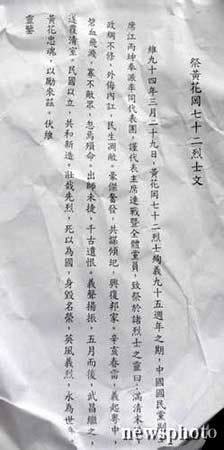 祭黃花岡七十二烈士文
維九十四年三月二十九日，黃花岡七十二烈士殉義九十五週年之期，中國國民黨副
席江丙坤奉派率同代表團，謹代表主席連戰暨全體黨員，致祭於諸烈士之靈曰：滿清末
政綱不修，外侮內訌，民生凋敝。豪傑奮發，共謀傾圯，興復邦家。辛亥春雷，義起粵中，
碧血飛濺，寡不敵眾，忽焉殞命。出師未捷，千古遺恨。義聲揚振，五月而後，武昌繼之，
遂覆清室，民國以立，共和新造。壯哉先烈，死以為國，身毀名榮，英風義烈，永為世
黃花忠魂，以勵來茲。伏維
靈鑒
newsphoto